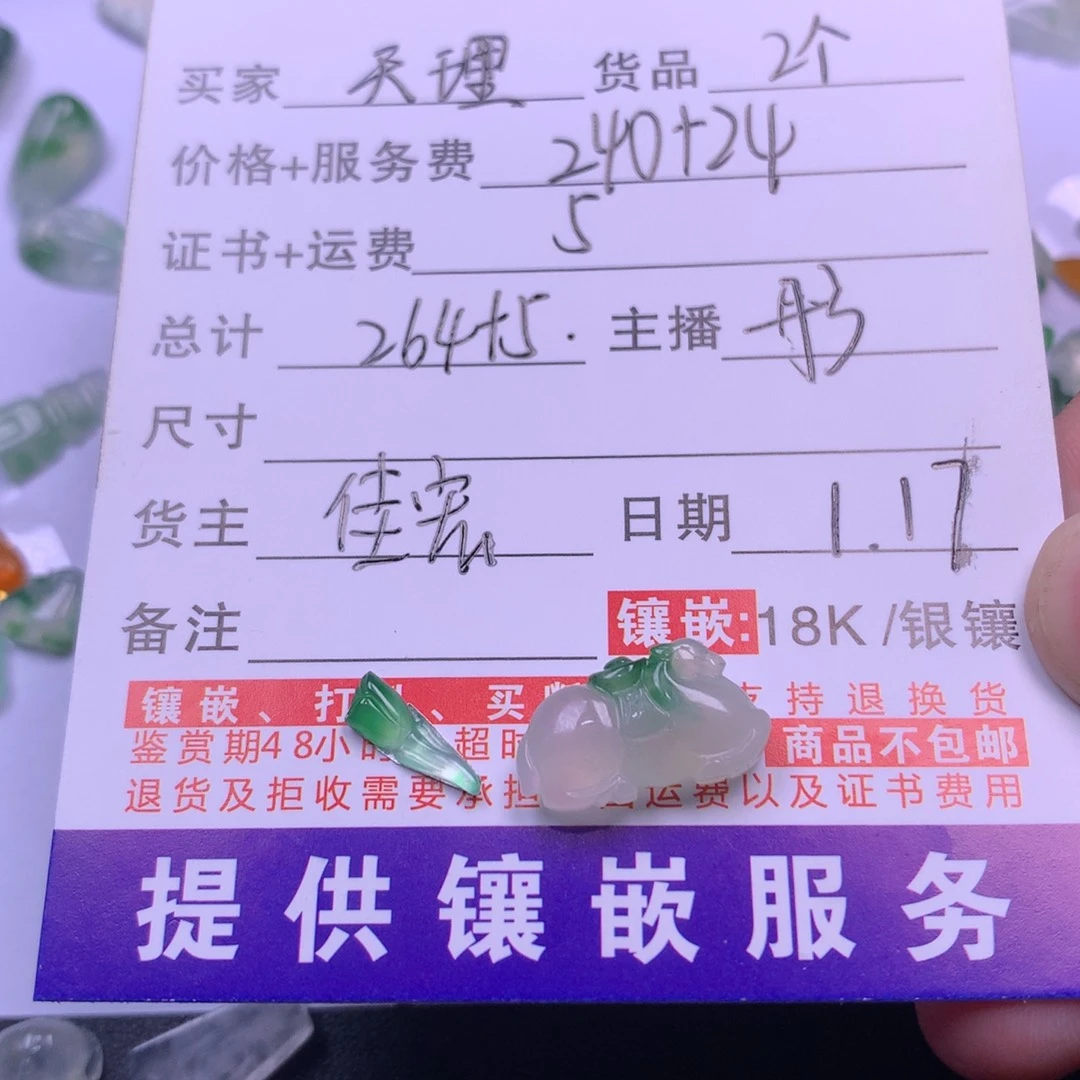 买家 天理 货品 2个
价格+服务费 240+24
证书+运费 5
总计 264+5. 主播 彤
尺寸
货主 佳宏 日期 1.17
备注 镶嵌:18K /银镶
镶嵌、打 、买 支持退换货
鉴赏期48小时 超时 商品不包邮
退货及拒收需要承担 运费以及证书费用
提供镶嵌服务